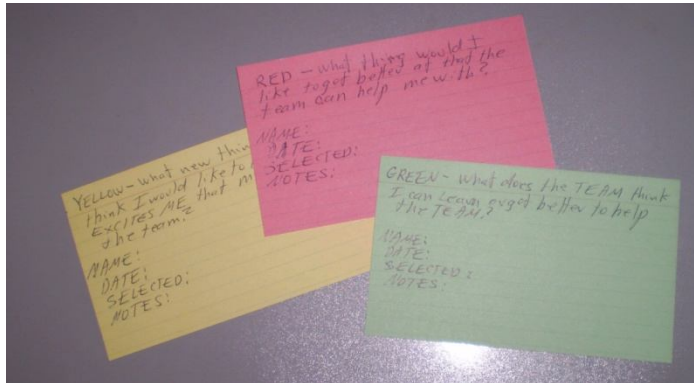 RED - what thing would I
like to get better at that the
team can help me with?
NAME:
DATE:
SELECTED:
NOTES:
YELLOW - what new thin
think I would like to
EXCITES ME that m
the team?
NAME:
DATE:
SELECTED:
NOTES:
GREEN - what does the TEAM think
I can learn or get better to help
the TEAM?
NAME:
DATE:
SELECTED:
NOTES: